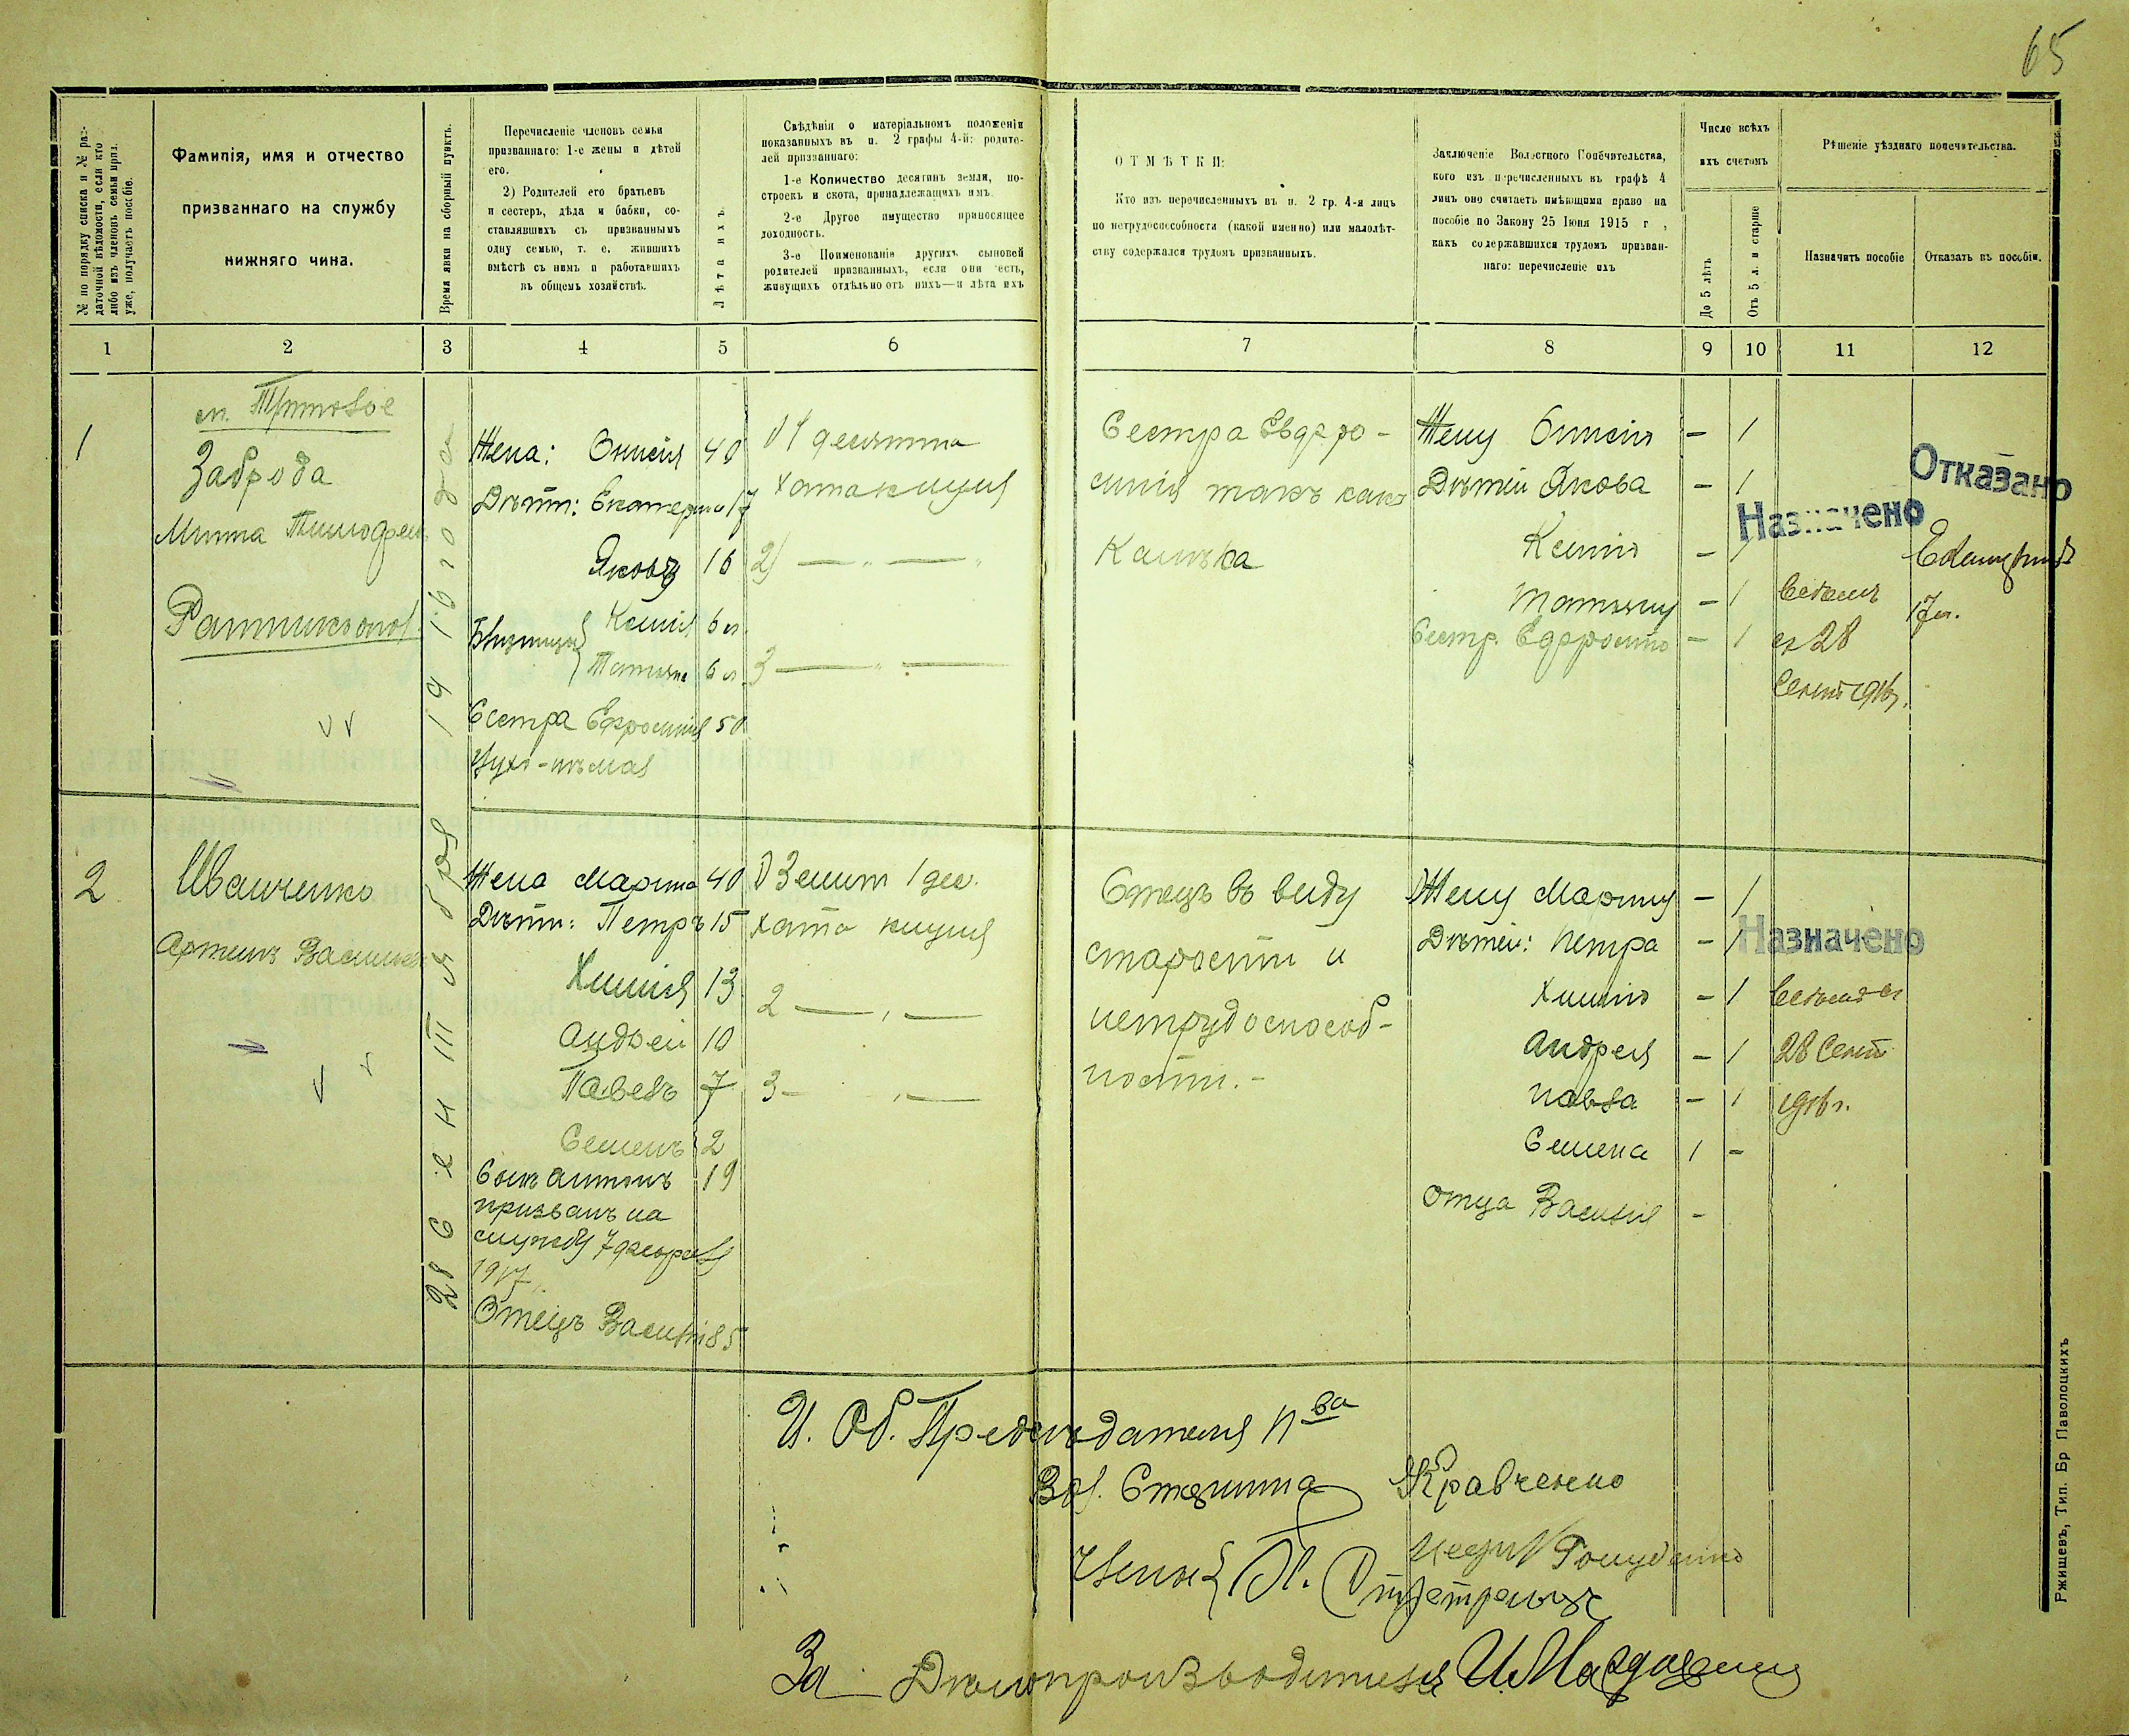 65
№ по порядку списка и № раз-
даточной вѣдомости, если кто
либо изъ членовъ семьи приз.
уже, получаетъ пособіе.
Фамилія, имя и отчество
призваннаго на службу
нижняго чина.
Время явки на сборный пунктъ.
Перечисленіе членовъ семьи
призваннаго: 1-е жены и дѣтей
его.
2) Родителей его братьевъ
и сестеръ, дѣда и бабки, со-
ставлявшихъ съ призваннымъ
одну семью, т. е. жившихъ
вмѣстѣ съ нимъ и работавшихъ
въ общемъ хозяйствѣ.
Лѣта ихъ.
Свѣдѣнія о матеріальномъ положеніи
показанныхъ въ п. 2 графы 4-й: родите-
лей призваннаго:
1-е Количество десятинъ земли, по-
строекъ и скота, принадлежащихъ имъ.
2-е Другое имущество приносящее
доходность.
3-е Поименованіе другихъ сыновей
родителей призванныхъ, если они есть,
живущихъ отдѣльно отъ нихъ—и лѣта ихъ
ОТМѢТКИ:
Кто изъ перечисленныхъ въ п. 2 гр. 4-я лицъ
по нетрудоспособности (какой именно) или малолѣт-
ству содержался трудомъ призванныхъ.
Заключеніе Волостного Попечительства,
кого изъ перечисленныхъ въ графѣ 4
лицъ оно считаетъ имѣющими право на
пособіе по Закону 25 Іюня 1915 г ,
какъ содержавшихся трудомъ призван-
наго: перечисленіе ихъ
Число всѣхъ
ихъ счетомъ
До 5 лѣтъ
Отъ 5 л. и старше
Рѣшеніе уѣзднаго попечительства.
Назначить пособіе
Отказать въ пособіи.
1 2 3 4 5 6 7 8 9 10 11 12
1
Заброда
28 сентября 1916 года
Жена: Онисія 40
Дѣти: Екатерина 17
Яковъ 16
Близнецы { Ксенія 6 л.
Татьяна 6 л.
Сестра Ефросинія 50
Глухо-нѣмая
1) 1 десятина
Хата кищня
2) — " — "
3 — " —
Сестра Евфро-
синія такъ какъ
Калѣка
Жену Онисію – 1
Дѣтей Якова – 1
Ксенію – 1
Татьяну – 1
Сестр. Ефросинію – 1
Назначено
съ 28
Сент 1916 г.
Отказано
17 л.
2
Иванченко
Артемъ
Жена Марина 40
Дѣти: Петръ 15
Химія 13
Андрей 10
Павелъ 7
Семенъ 2
Сынъ Антонъ 19
призванъ на
службу 7 февраля
1917
Отецъ Василій 85
1) Земли 1 дес.
хата кищня
2 — " —
3 — " —
Отецъ въ виду
старости и
нетрудоспособ-
ности. –
Жену Марину – 1
Дѣтей: Петра – 1
Химію – 1
Андрея – 1
Павла – 1
Семена 1 –
Отца Василія –
Назначено
28 Сент
1916 г.
И. Об. Предсѣдателя П-ва
Вол. Старшина Кравченко
Члены {
За Дѣлопроизводителя
Ржищевъ, Тип. Бр Паволоцкихъ